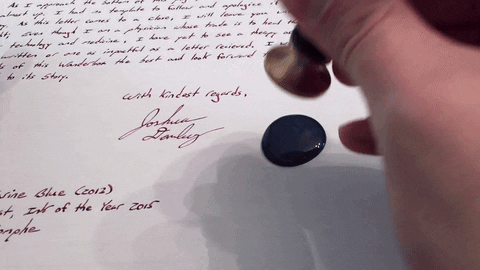 As I approach the bottom of this
almost up, I had no template to follow and apologize i
. As this letter comes to a close, I will leave you
st, Even though I am a physician whose trade is to heal t
technology and medicine, I have yet to see a therapy as
written or one as impactful as a letter recieved. I w
of this Wanderbox the best and look forward
to its story.
With Kindest regards,
Joshua
Danley
ine Blue (2012)
st, Ink of the Year 2015
omphe